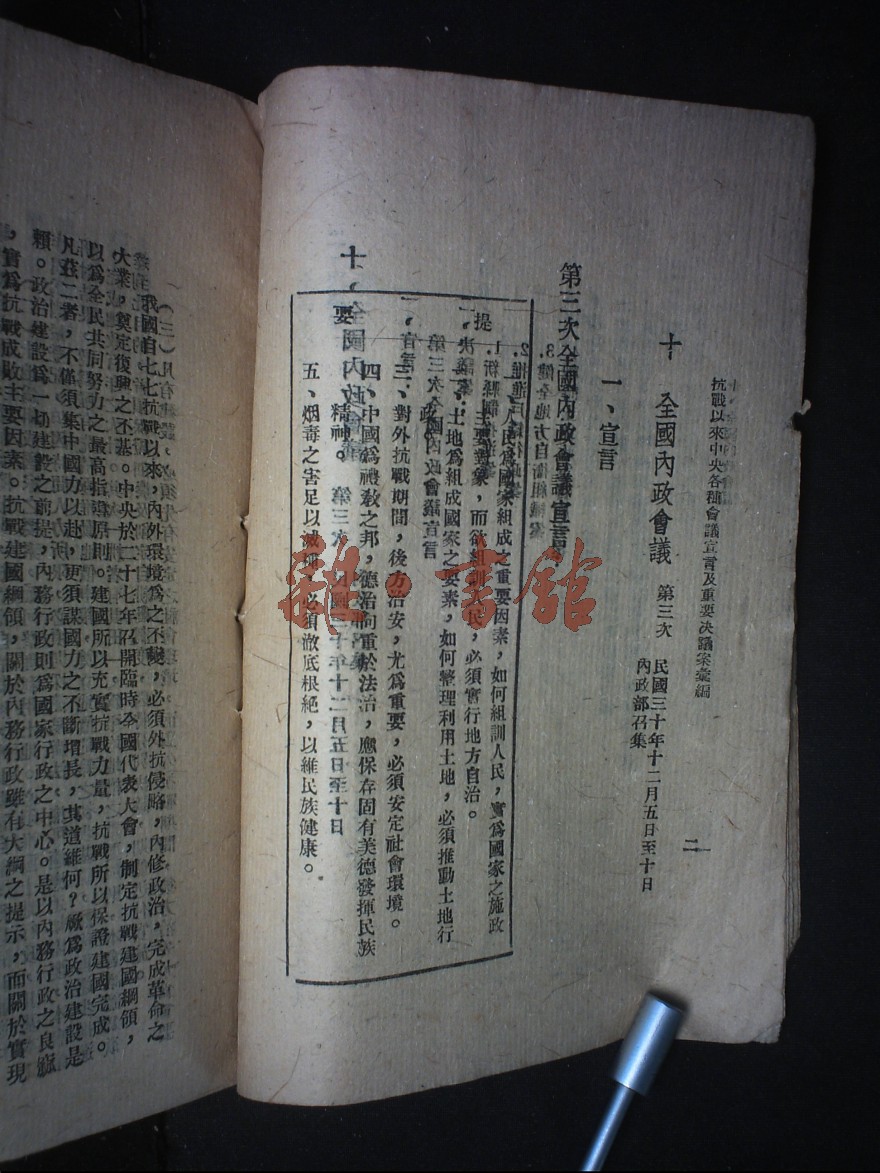 抗戰以來中央各種會議宣言及重要決議案彙編
二
十 全國內政會議 第三次 民國三十年十二月五日至十日
內政部召集
一、宣言
第三次全國內政會議宣言
提
要
一、人民為國家組成之重要因素,如何組訓人民,實為國家之施政
主要對象,而欲組訓人民,必須實行地方自治。
二、土地為組成國家之要素,如何整理利用土地,必須推動土地行
政。
三、對外抗戰期間,後方治安,尤為重要,必須安定社會環境。
四、中國為禮敎之邦,德治向重於法治,應保存固有美德發揮民族
精神。
五、烟毒之害足以滅種,必須澈底根絕,以維民族健康。
十、全國內政會議
第三次 民國三十年十二月五日至十日
一、宣言:
第三次全國內政會議宣言
二、決議案:
1. 新縣制
2. 推進
3. 健全地方自治組織案
我國自七七抗戰以來,內外環境為之丕變,必須外抗侵略,內修政治,完成革命之
大業,奠定復興之丕基。中央於二十七年召開臨時全國代表大會,制定抗戰建國綱領,
以為全民共同努力之最高指導原則。建國所以充實抗戰力量,抗戰所以保證建國完成。
凡茲二者,不僅須集中國力以赴,更須謀國力之不斷增長,其道維何?厥為政治建設是
賴。政治建設為一切建設之前提,內務行政則為國家行政之中心。是以內務行政之良窳
,實為抗戰成敗主要因素。抗戰建國綱領,關於內務行政雖有大綱之提示,而關於實現
雜·書館